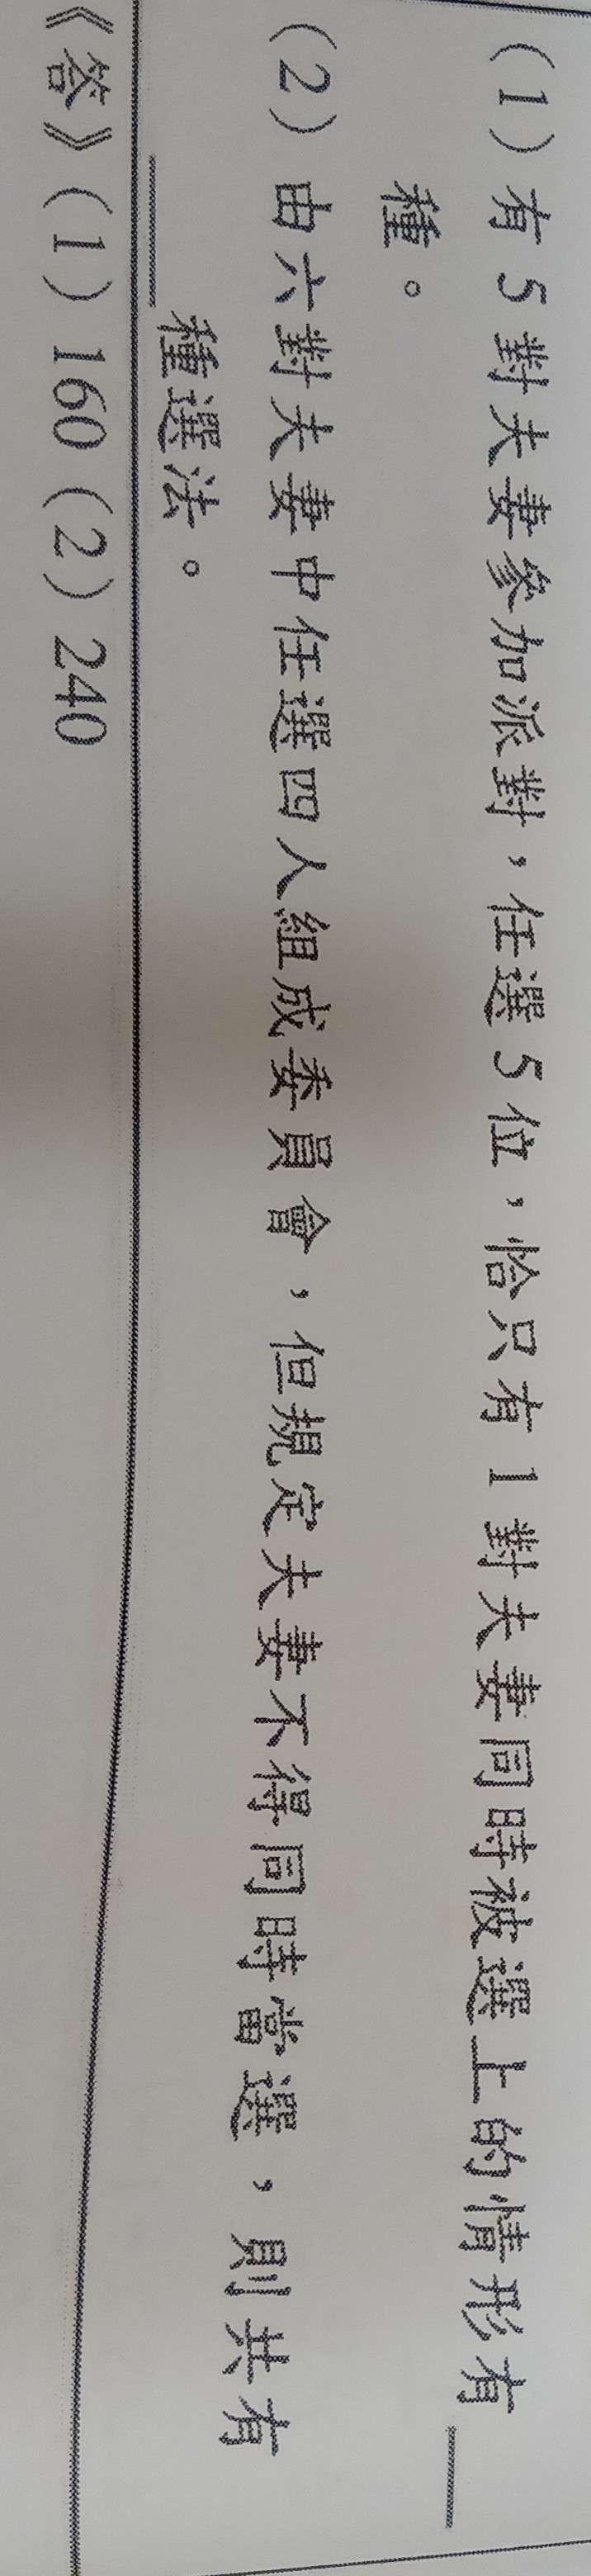 (1) 有 5 對夫妻參加派對，任選 5 位，恰只有 1 對夫妻同時被選上的情形有____
種。
(2) 由六對夫妻中任選四人組成委員會，但規定夫妻不得同時當選，則共有
____種選法。
《答》(1) 160 (2) 240